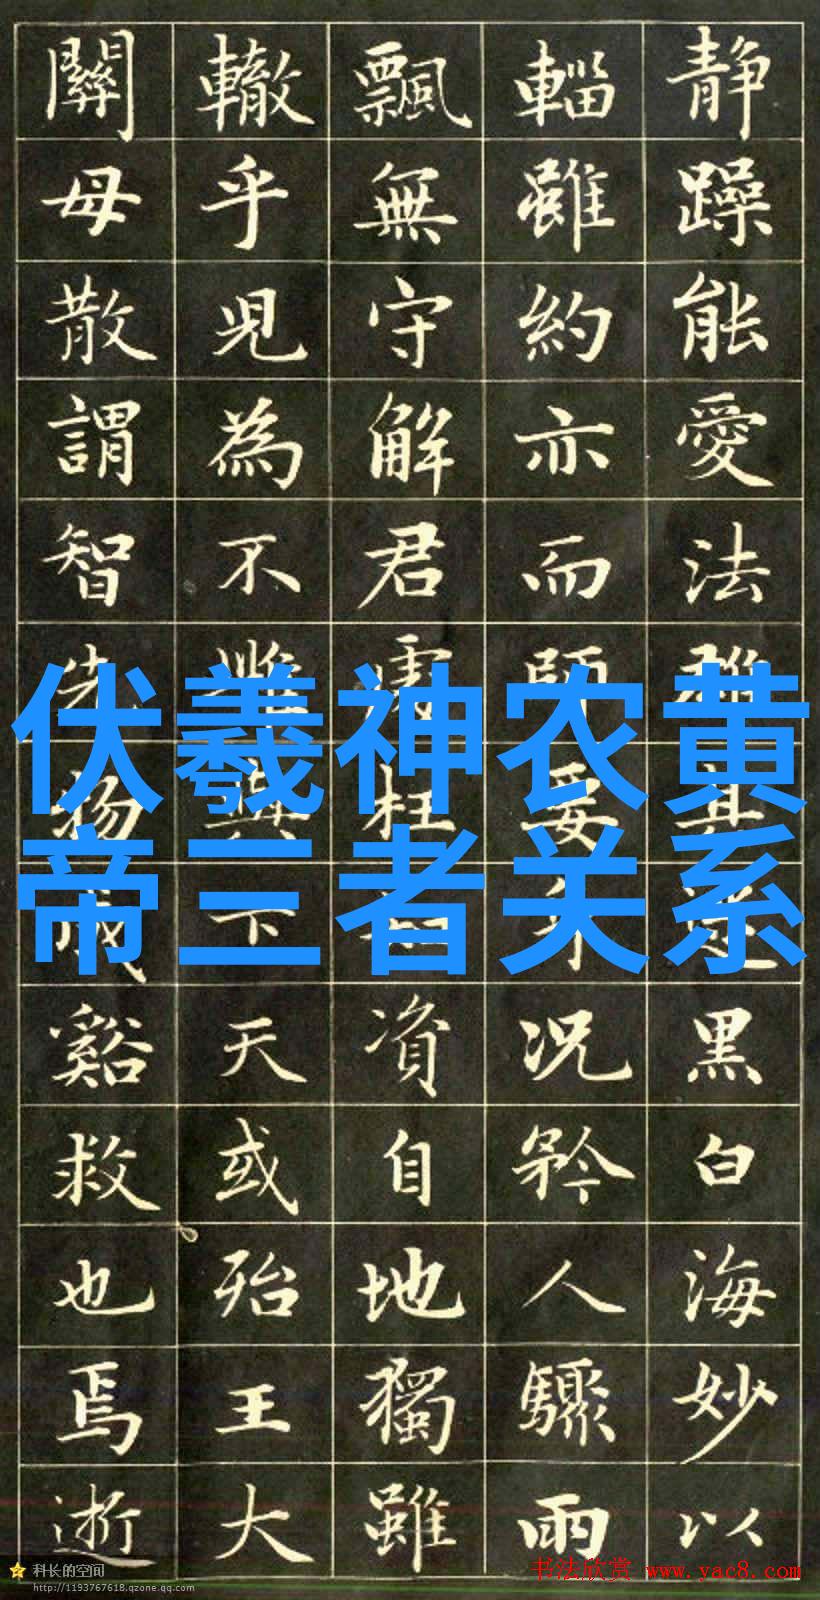 静躁能愛法雅其黑白海妙以
輜雖約亦而師要况矜人驟雨
飄無守解君處枉資自地獨雖
轍乎児為不下天或殆王大
關毋散謂智先物成谿救也焉逝
伏羲神农黄
帝三者关系
科长的空间
http://1193767618.qzone.qq.com
书法欣赏 www.yac8.com